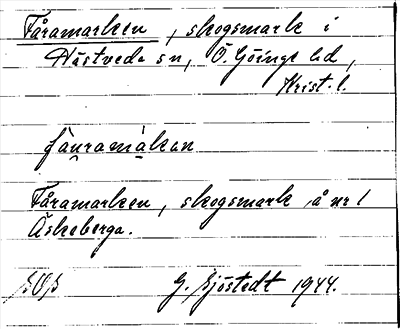 Fåramarken, skogsmark i
Hästveda sn, Ö. Göinge hd,
Krist. l.
fåuramàkan
Fåramarken, skogsmark å nr 1
Äskeberga.
G. Sjöstedt 1944.